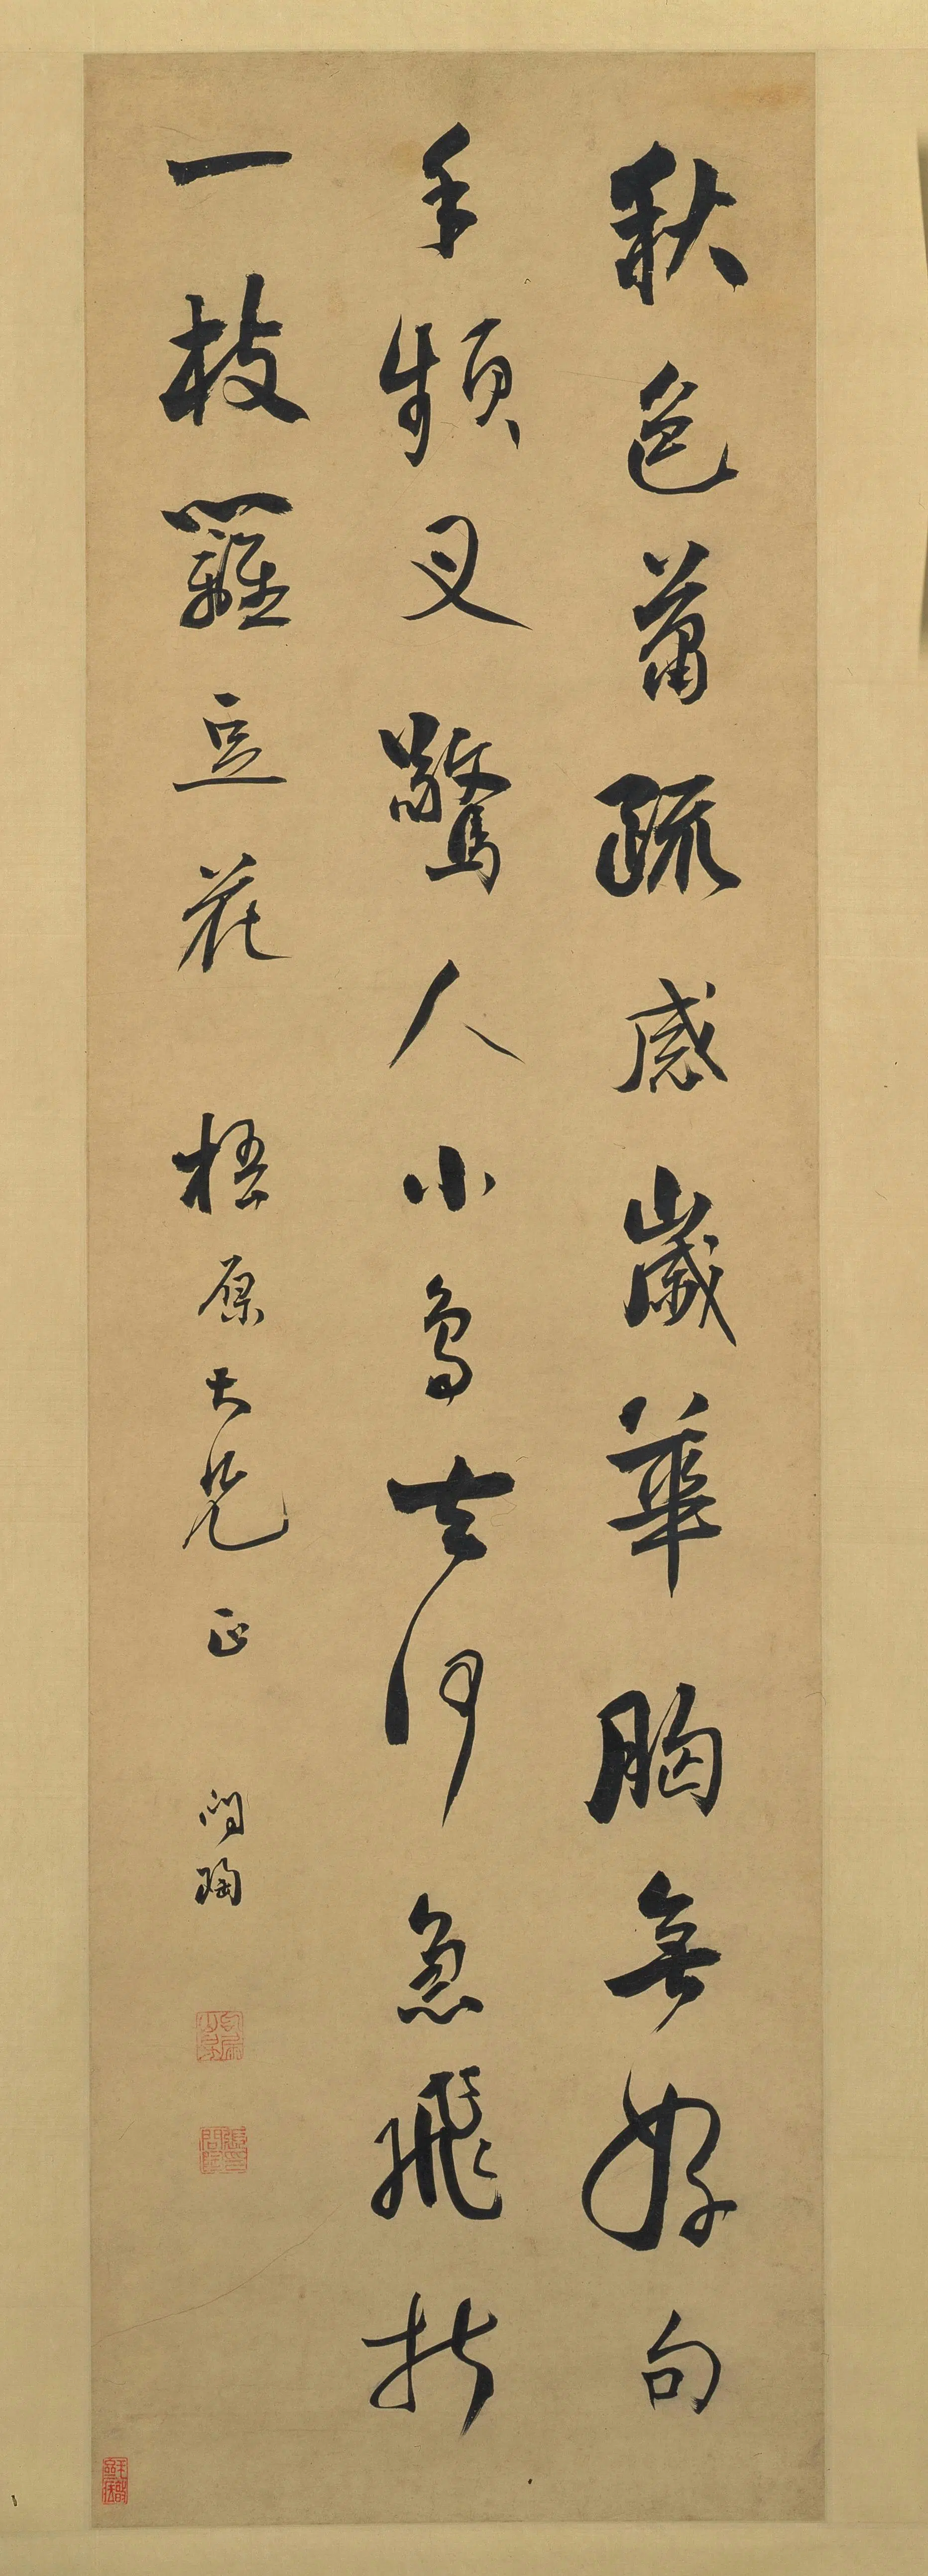 秋色蕭疏感歲華胸無好句
手頻叉驚人小鳥去何急飛折
一枝籬豆花 梧原大兄正 問陶
張問陶印